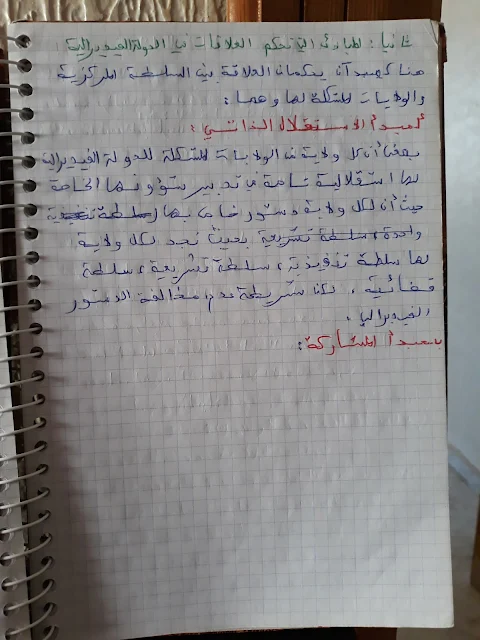 ثانيا: المبادئ التي تحكم العلاقات في الدولة الفيدرالية
هناك مبدآن يحكمان العلاقة بين السلطة المركزية
والولايات المشكلة لها وهما:
أ- مبدأ الاستقلال الذاتي:
يعني أن كل ولاية من الولايات المشكلة للدولة الفيدرالية
لها استقلالية تامة في تدبير شؤونها الخاصة
حيث أن لكل ولاية دستور خاص بها سلطة تنفيذية
واحدة، سلطة تشريعية بحيث نجد لكل ولاية
لها سلطة تنفيذية، سلطة تشريعية، سلطة
قضائية، لكن شريطة عدم مخالفة الدستور
الفيدرالي.
ب- مبدأ المشاركة: